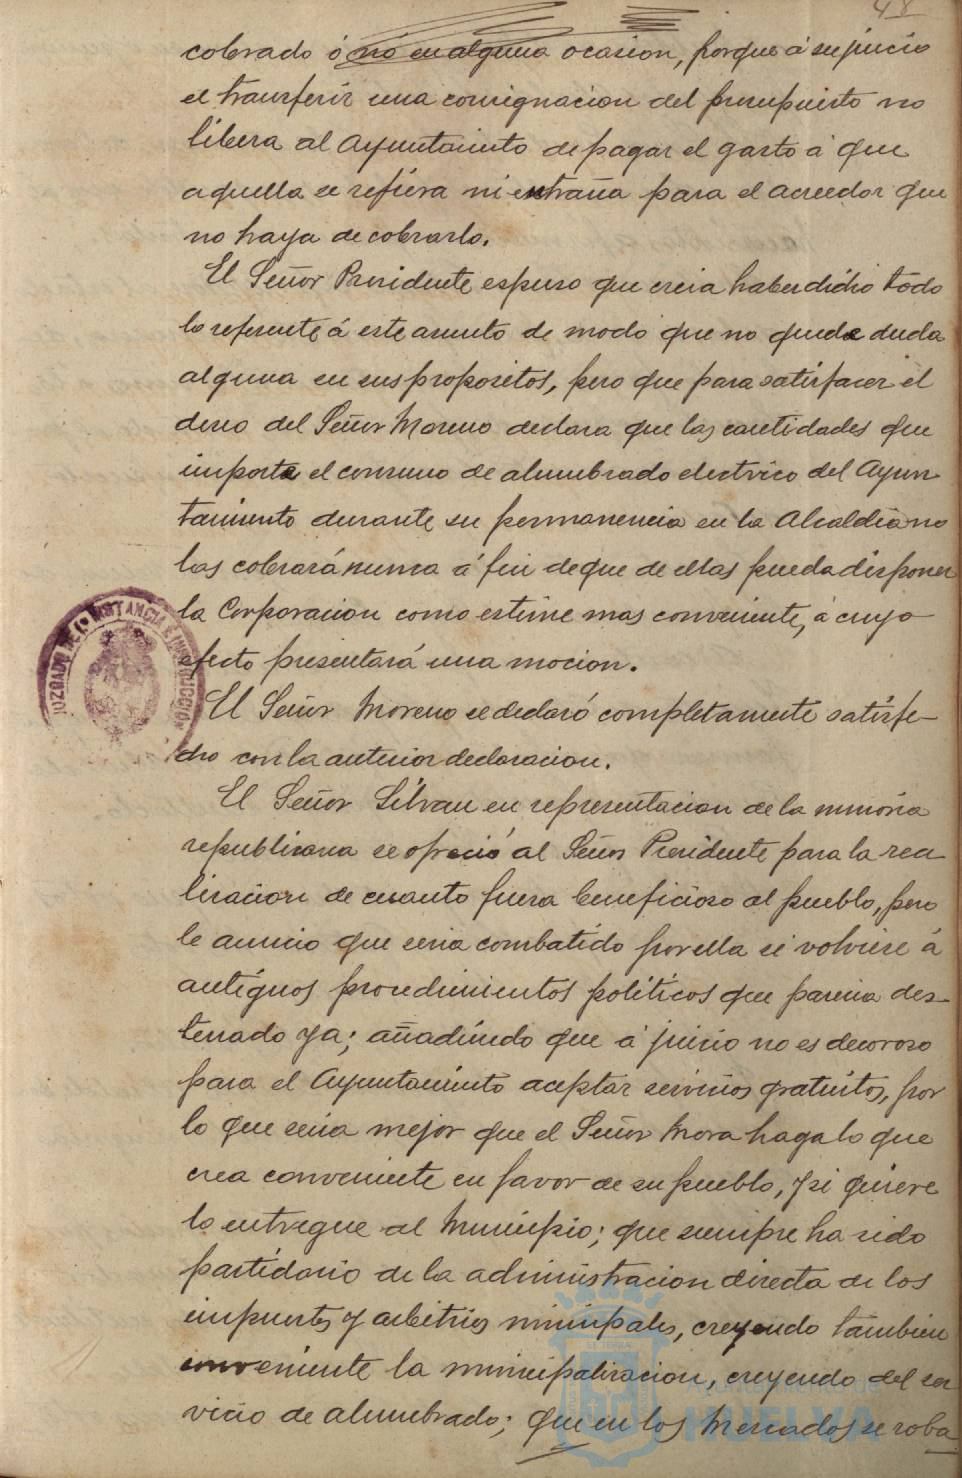 48
cobrado ó nó en alguna ocasion, porque á su juicio
el transferir una consignacion del presupuesto no
libera al Ayuntamiento de pagar el gasto á que
aquella se refiera ni entraña para el acreedor que
no haya de cobrarlo.
El Señor Presidente espuso que creia haber dicho todo
lo referente á este asunto de modo que no quede duda
alguna en sus propositos, pero que para satisfacer el
deseo del Señor Moreno declara que las cantidades que
importe el consumo de alumbrado electrico del Ayun-
tamiento durante su permanencia en la Alcaldia no
las cobrará nunca á fin de que de ellas pueda disponer
la Corporacion como estime mas conveniente, á cuyo
efecto presentará una mocion.
El Señor Moreno se declaró completamente satisfe-
cho con la anterior declaracion.
El Señor Silvan en representacion de la minoria
republicana se ofreció al Señor Presidente para la rea-
lizacion de cuanto fuera beneficioso al pueblo, pero
le anucio que seria combatido por ella si volviese á
antiguos procedimientos politicos que parecia des-
terrado ya; añadiendo que á juicio no es decoroso
para el Ayuntamiento aceptar servicios gratuitos, por
lo que seria mejor que el Señor Mora haga lo que
crea conveniente en favor de su pueblo, y si quiere
lo entregue al Municipio; que siempre ha sido
partidario de la administracion directa de los
impuestos y arbitrios municipales, creyendo tambien
conveniente la municipalizacion, creyendo del ser-
vicio de alumbrado; que en los Mercados se roba
JUZGADO DE 1ª INSTANCIA E INSTRUCCION
Ayuntamiento de
HUELVA